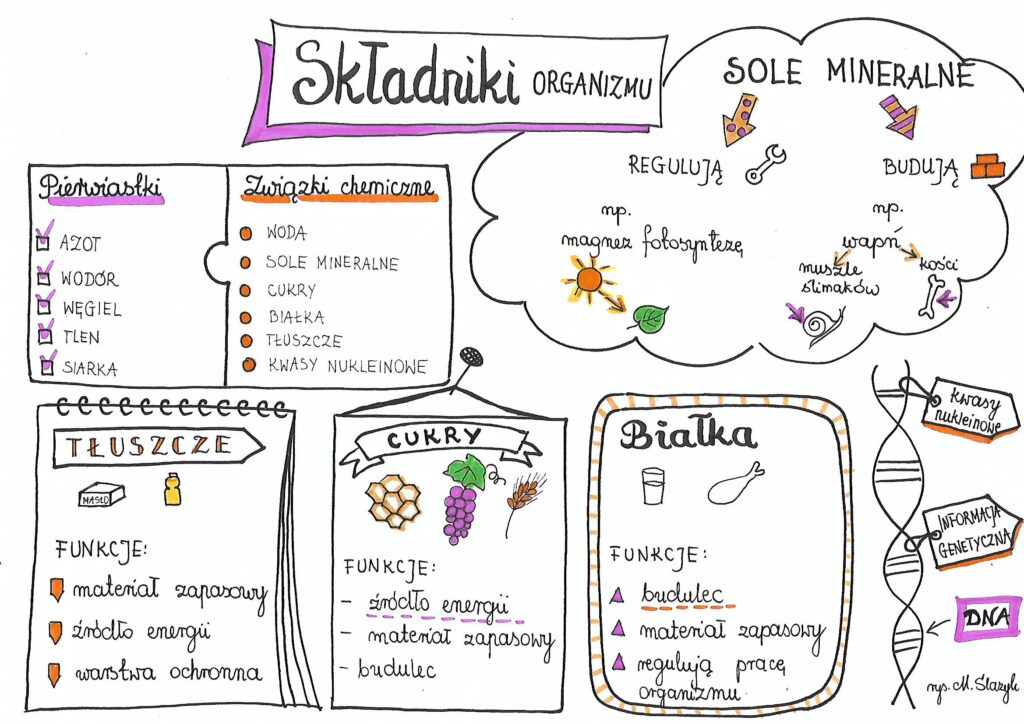 Składniki ORGANIZMU
Pierwiastki
AZOT
WODÓR
WĘGIEL
TLEN
SIARKA
Związki chemiczne
WODA
SOLE MINERALNE
CUKRY
BIAŁKA
TŁUSZCZE
KWASY NUKLEINOWE
SOLE MINERALNE
REGULUJĄ
np.
magnez fotosyntezę
BUDUJĄ
np.
wapń
muszle
ślimaków
kości
TŁUSZCZE
MASŁO
FUNKCJE:
materiał zapasowy
źródło energii
warstwa ochronna
CUKRY
FUNKCJE:
- źródło energii
- materiał zapasowy
- budulec
Białka
FUNKCJE:
budulec
materiał zapasowy
regulują pracę
organizmu
kwasy
nukleinowe
INFORMACJA
GENETYCZNA
DNA
rys. M. Ślazyk